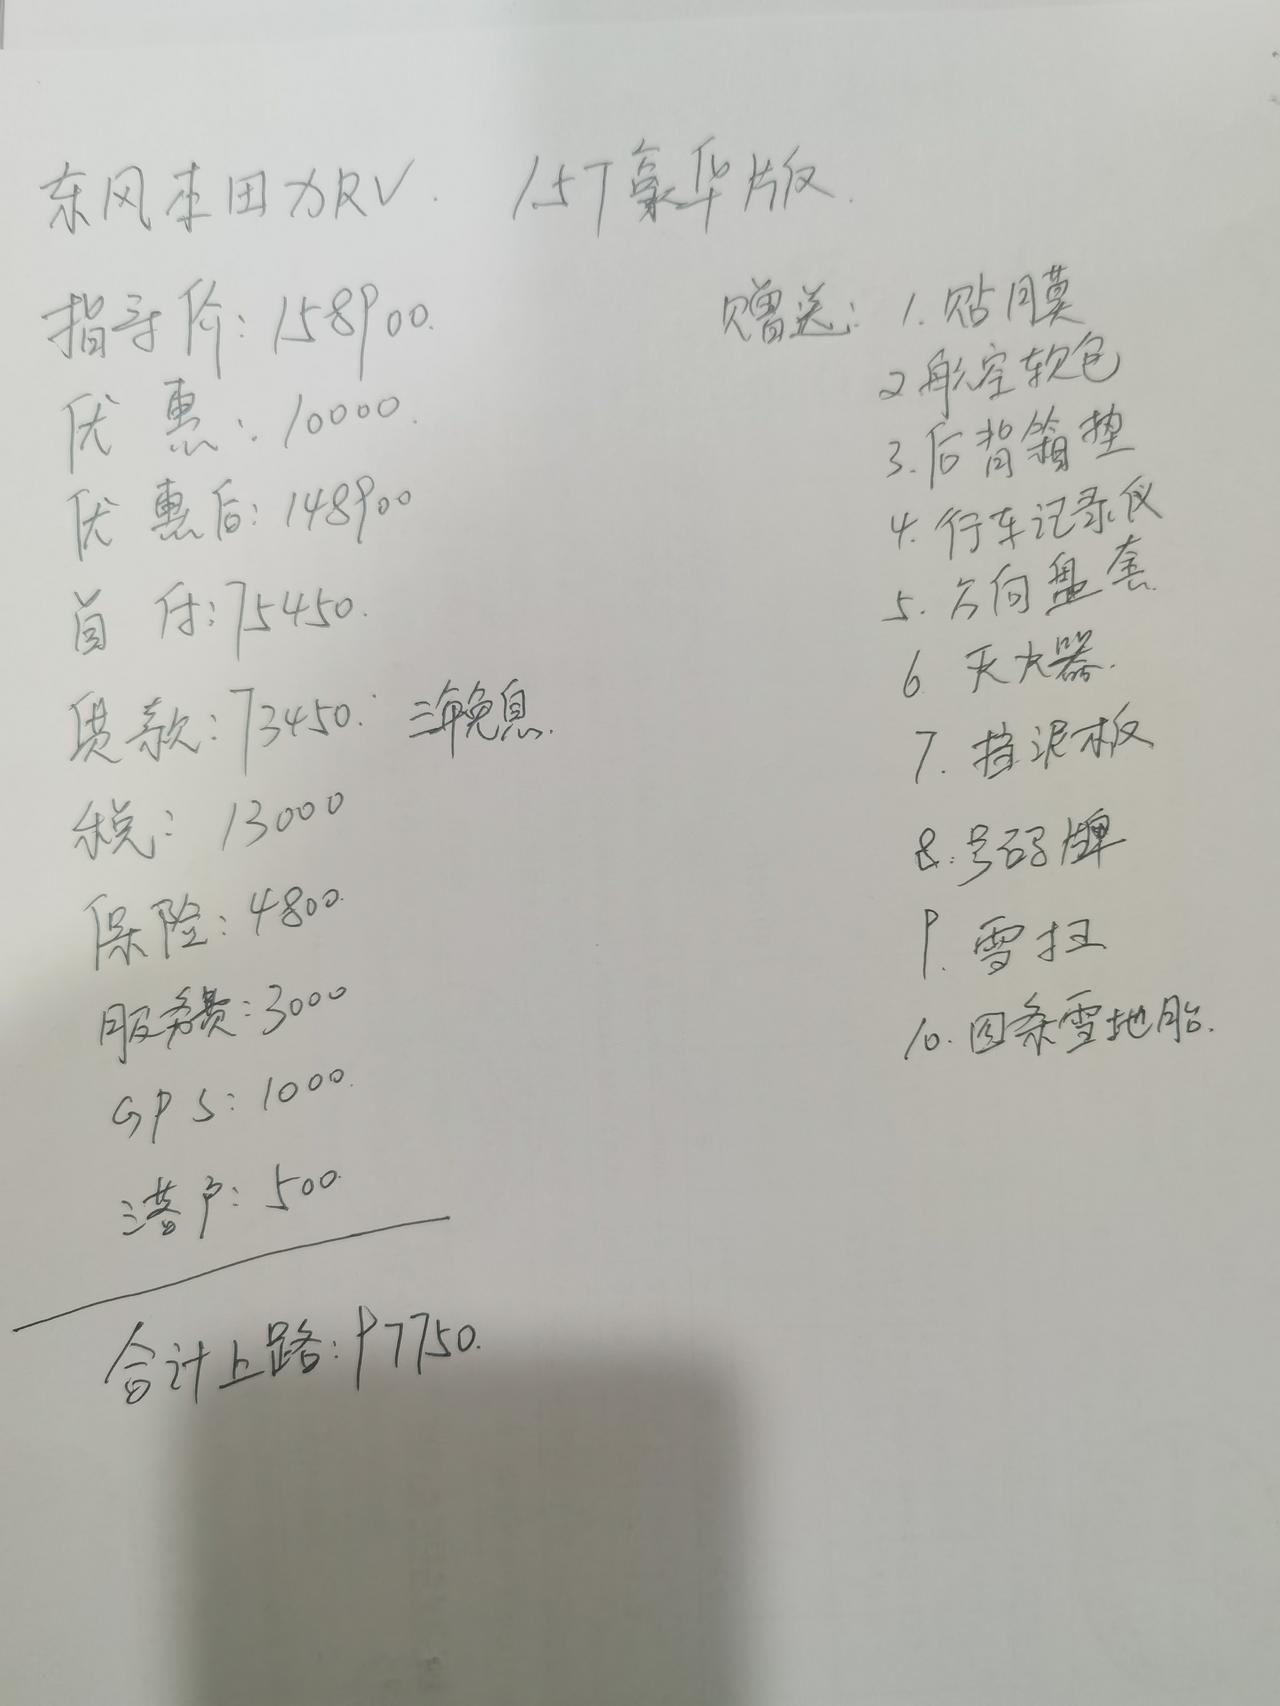 东风本田XRV. 1.5T豪华版.
指导价:158900.
优惠:10000.
优惠后:148900
首付:75450.
贷款:73450. 三年免息.
税:13000
保险:4800.
服务费:3000
GPS:1000.
落户:500.
合计上路:97750.
赠送:1.贴膜
2航空软包
3.后背箱垫
4.行车记录仪
5.方向盘套
6 灭火器.
7.挡泥板
8.号码牌
9.雪扫
10.四条雪地胎.